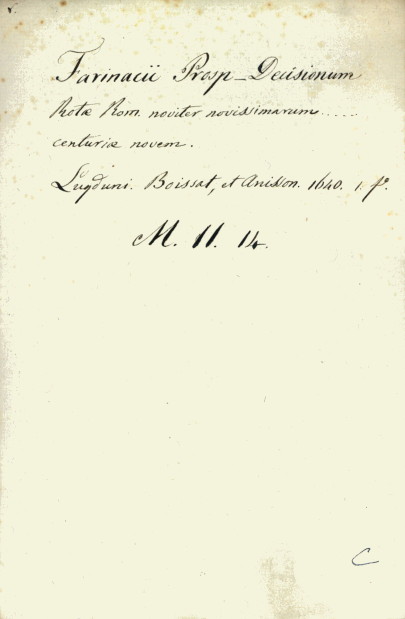 Farinacii Prosp_Decisionum
Rotæ Rom. noviter novissimarum.....
centuriæ novem.
Lugduni. Boissat, et Anisson. 1640. 1. fº.
M. 11. 14.
C